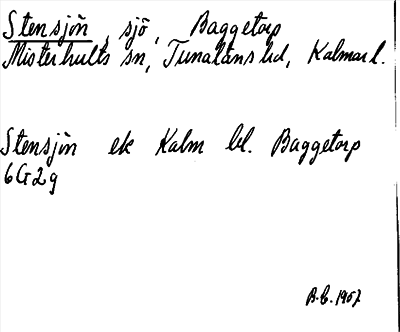 Stensjön, sjö, Baggetorp
Misterhults sn, Tunaläns hd, Kalmar l.
Stensjön ek Kalm bl. Baggetorp
6G2g
B.E. 1957